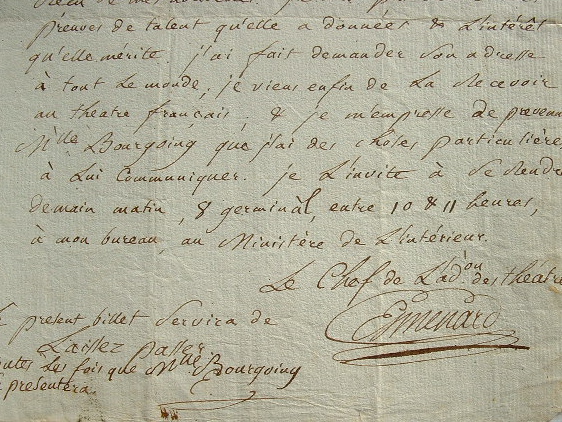 preuves de talent qu'elle a données & L'intérêt
qu'elle mérite. j'ai fait demander son adresse
à tout le monde; je viens enfin de La recevoir
au théatre français; & je m'empresse de prevenir
Mlle Bourgoing que j'ai des choses particulières
à Lui Communiquer. je L'invite à se rendre
demain matin, 8 germinal, entre 10 & 11 heures,
à mon bureau, au Ministère de L'intérieur.
Le Chef de L'ad.on des théatre
Esmenard
present billet Servira de
Laissez passer
toutes Les fois que Mlle Bourgoing
se presentera.